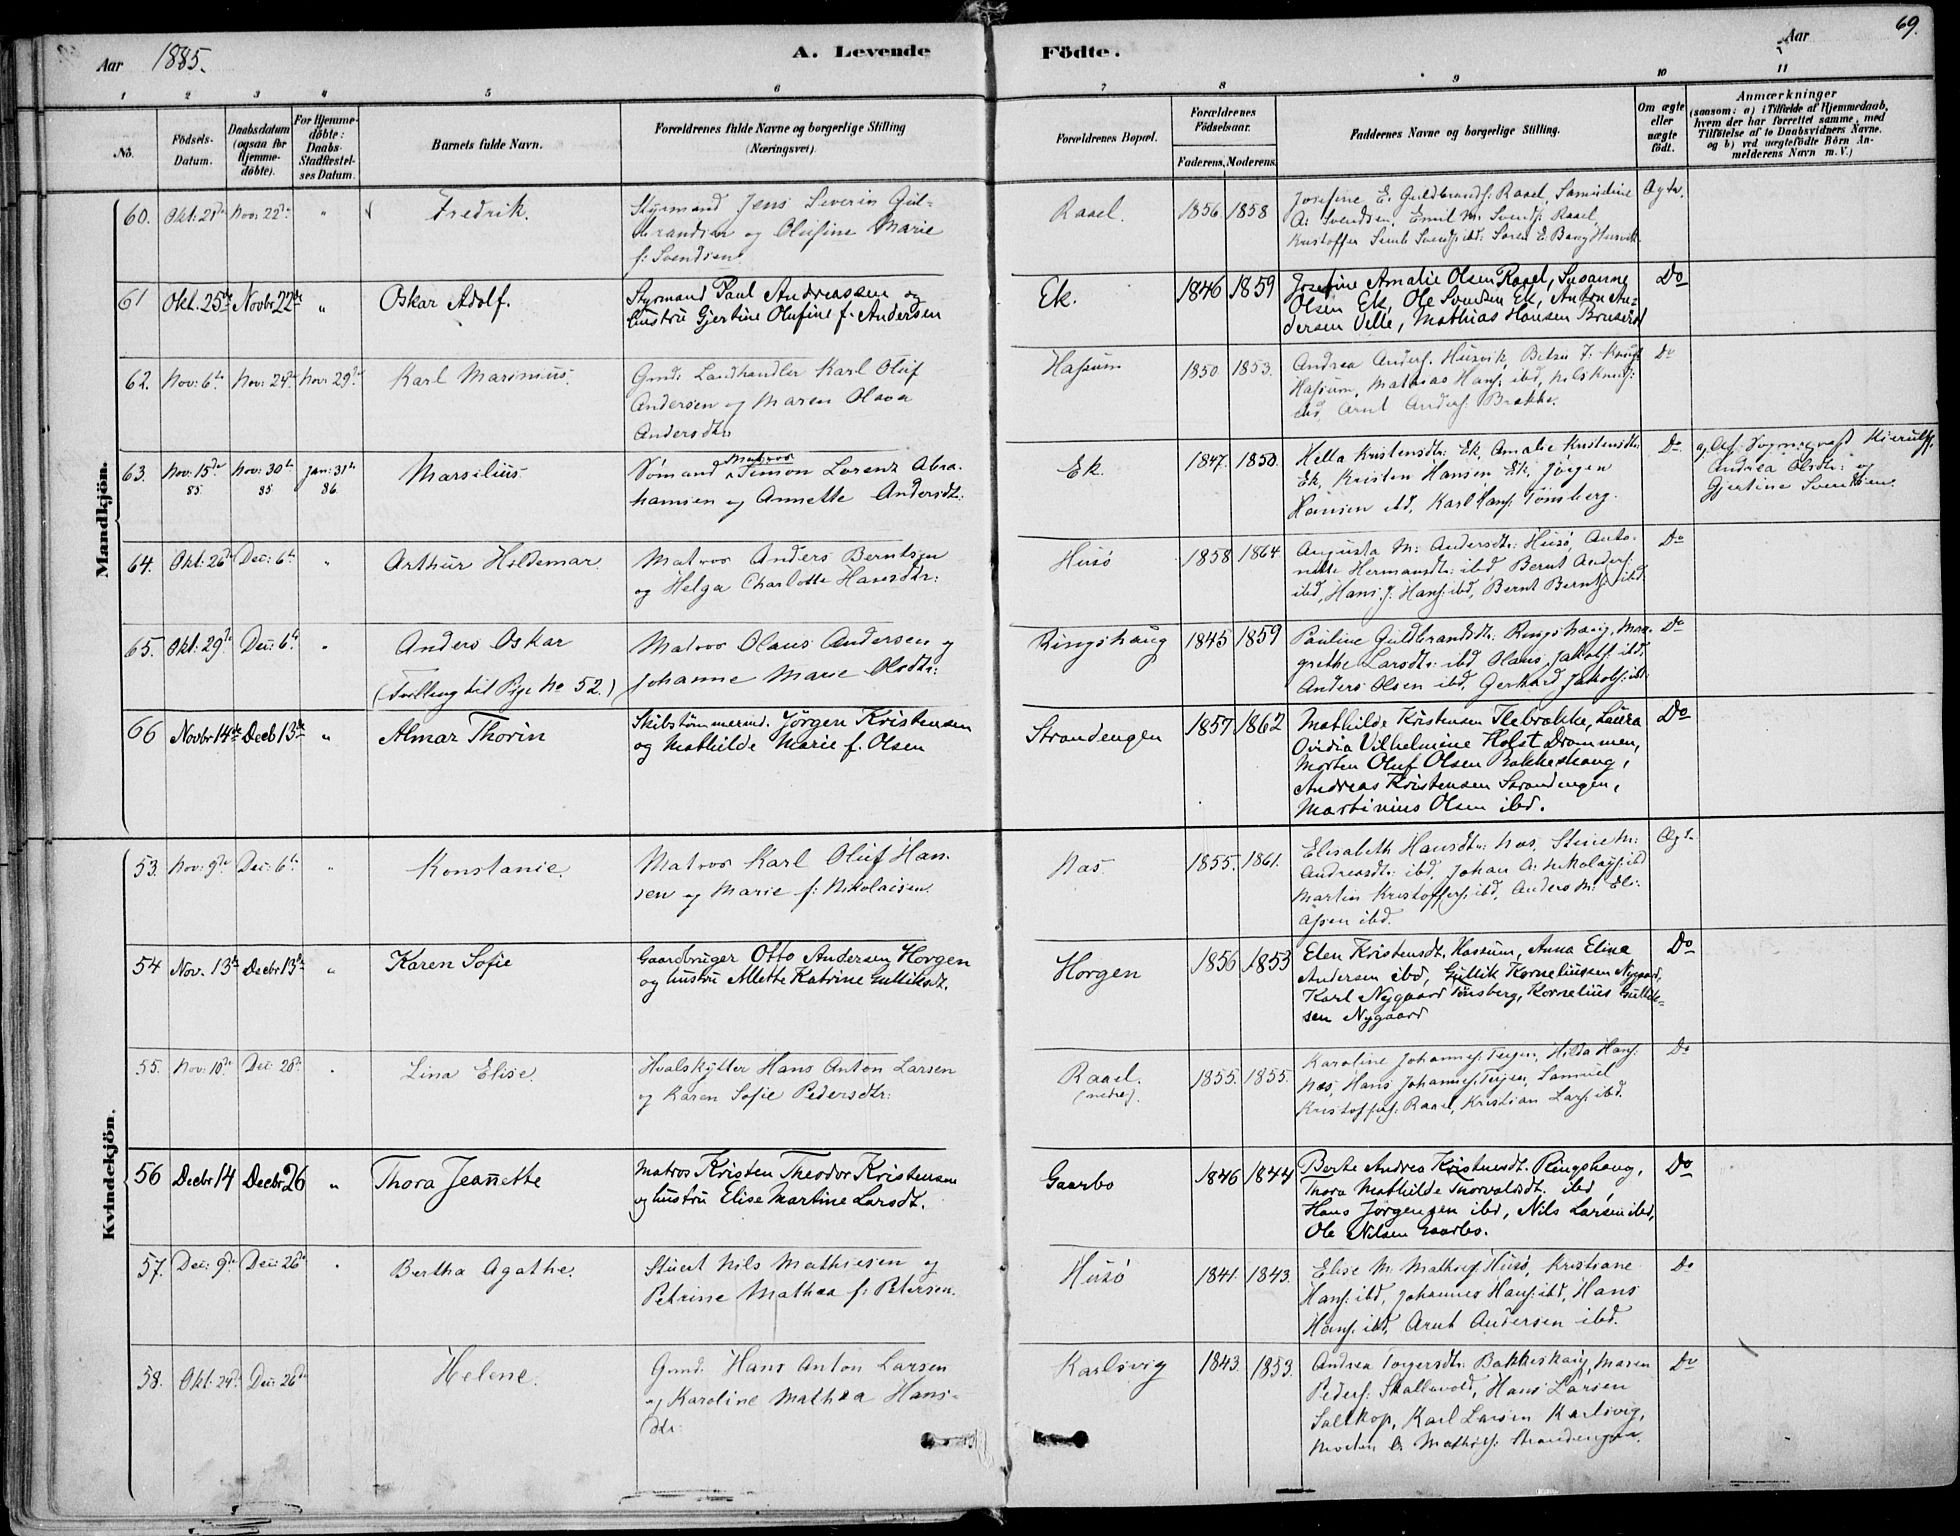 69.
Aar 1885.
A. Levende
Födte.
Aar
1
2
3
4
5
6
7
8
9
10
11
No.
Födsels-
Datum.
Daabsdatum
(ogsaa for
Hjemme-
döbte).
For Hjemme-
döbte:
Daabs-
Stadfæstel-
ses Datum.
Barnets fulde Navn.
Forældrenes fulde Navne og borgerlige Stilling
(Næringsvei).
Forældrenes Bopæl.
Forældrenes
Födselsaar.
Faderens. Moderens.
Faddernes Navne og borgerlige Stilling.
Om ægte
eller
uægte
födt.
Anmærkninger
(saasom: a) i Tilfælde af Hjemmedaab,
hvem der har forrettet samme, med
Tilföielse af to Daabsvidners Navne,
og b) ved uægtefödte Börn An-
melderens Navn m. V.)
Mandkjön.
60. Okt: 21de Nov: 22de " Fredrik.
Styrmand Jens Severin Gul-
brandsen og Olufine Marie
f: Svendsen
Raael. 1856 1858
Josefine E. Guldbrands: Raael, Samueline
A: Svendsen, Emil M: Svends: Raael,
Kristoffer Svends: ibd: Soren E. Bang Husvik
Ægte.
61 Okt. 25de Novbr 22de " Oskar Adolf.
Styrmand Paul Andreassen og
hustru Gjertine Olufine f. Andersen
Ek. 1846 1859
Josefine Amalie Olsen Raael, Susanne
Olsen Ek, Ole Svendsen Ek, Anton An-
dersen Velle, Mathias Hansen Bruseröd
Do
62. Nov: 6te Nov: 24de Nov: 29de Karl Marinius.
Gmd: Landhandler Karl Oluf
Andersen og Maren Olava
Andersdtr.
Hassum 1850 1853.
Andrea Anders: Husvik, Betsy J. Knuds:
Hassum, Mathias Hans: ibd, Nils Knuds:
ibd, Arnt Anders: Brække.
Do
63. Nov: 15de 85 Nov: 30te 85 Jan: 31te 86 Marsilius
Matros
Sömand Simon Lorenz Abra-
hamsen og Annette Andersdt:
Ek. 1847. 1850.
Hella Kristensdtr: Ek, Amalie Kristensdtr:
Ek, Kristen Hansen Ek, Jörgen
Hansen ibd, Karl Hans: Tönsberg.
Do
a, Af Sognepræst Kierulf,
Andrea Olsdtr: og
Gjertine Svendsen.
64. Okt: 26de Dec: 6te " Arthur Hildemar.
Matros Anders Berntsen
og Helga Charlotte Hansdtr:
Husö 1858 1864
Augusta M: Andersdtr: Husö, Anto-
nette Hermansdtr: ibd, Bernt Anders:
ibd, Hans J. Hans: ibd, Bernt Bernts: ibd.
Do
65. Okt: 29de Dec: 6te " Anders Oskar
(Tvilling til Pige No 52.)
Matros Olaus Andersen og
Johanne Marie Olsdtr:
Ringshaug 1845 1859
Pauline Guldbrandsdtr: Ringshaug, Mar-
grethe Larsdtr: ibd, Olaus Jakobs: ibd,
Anders Olsen ibd, Gerhard Jakobs: ibd.
Do
66 Novbr 14de Decb 13de " Almar Thorin
Skibstömmermd. Jörgen Kristensen
og Mathilde Marie f. Olsen
Strandengen 1857 1862
Mathilde Kristensen Ilebrække, Laura
Ovidia Vilhelmine Holst Drammen,
Morten Oluf Olsen Bakkeshaug,
Andreas Kristensen Strandengen,
Martinius Olsen ibd.
Do
Kvindekjön.
53. Nov: 9de Dec: 6te " Konstanie.
Matros Karl Oluf Han-
sen og Marie f: Nikolaisen.
Næs. 1855. 1861.
Elisabeth Hansdtr: Næs, Stine M:
Andreasdtr: ibd, Johan A: Nikolays: ibd
Martin Kristoffers: ibd, Anders M: Eli-
assen ibd.
Ægte.
54 Nov. 13de Decbr 13de " Karen Sofie
Gaardbruger Otto Andersen Horgen
og hustru Allette Katrine Gulliksdt.
Horgen 1856 1853
Elen Kristensdt. Hassum, Anna Elina
Andersen ibd, Gullik Korneliussen Nygaard,
Karl Nygaard Tönsberg, Kornelius Gullik-
sen Nygaard
Do
55. Nov: 10de Dec: 20de " Lina Elise.
Hvalskytter Hans Anton Larsen
og Karen Sofie Pedersdtr:
Raael.
(nedre). 1855. 1855.
Karoline Johannes: Teigen, Hilda Hans:
Næs, Hans Johannes: Teigen, Samuel
Kristoffers: Raael, Kristian Lars: ibd.
Do
56 Decbr 14 Decbr 26 " Thora Jeannette
Matros Kristen Theodor Kristensen
og hustru Elise Martine Larsdt.
Gaarbo 1846 1844
Berte Andrea Kristensdt. Ringshaug,
Thora Mathilde Thorvaldsdt. ibd,
Hans Jörgensen ibd, Nils Larsen ibd,
Ole Nilsen Gaarbo.
Do
57. Dec: 9de Dec: 26de " Bertha Agathe.
Stuert Nils Mathiesen og
Petrine Mathea f: Petersen.
Husö 1841. 1843.
Elise M. Mathies: Husö, Kristiane
Hans: ibd, Johannes Hans: ibd, Hans
Hans: ibd, Arnt Andersen ibd.
Do
58. Okt: 24de Dec: 26de Helene.
Gmd: Hans Anton Larsen
og Karoline Mathea Hans-
dtr.
Karlsvig 1843. 1853.
Andrea Torgersdtr: Bakkeskaug, Maren
Peders: Skallevold, Hans Larsen
Saltkop, Karl Larsen Karlsvig,
Morten Mathis: Strandengen.
Do